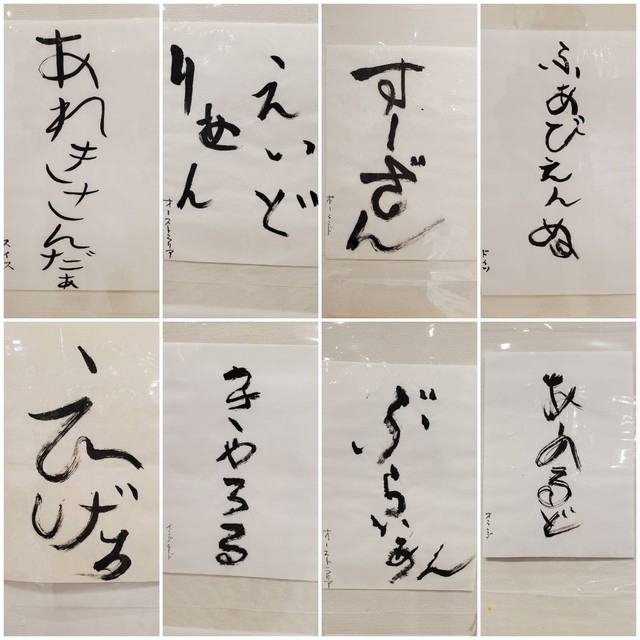 あれきさんだぁ
スイス
えいど
りあん
オーストラリア
すーざん
ポーランド
ふぁびえんぬ
ドイツ
えげる
きゃろる
イングランド
ぶらいあん
オーストラリア
あのるど
オランダ